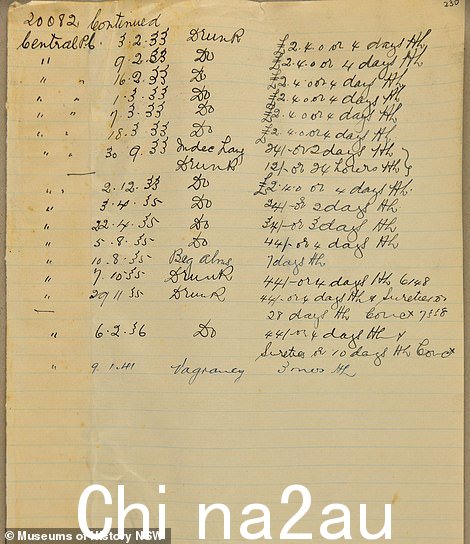 230
20082 Continued
Central P.C. 3.2.33 Drunk £2.4.0 or 4 days HL
" 9.2.33 Do £2.4.0 or 4 days HL
" " 16.2.33 Do £2.4.0 or 4 days HL
" " 1.3.33 Do £2.4.0 or 4 days HL
" " 7.3.33 Do £2.4.0 or 4 days HL
" " 18.3.33 Do £2.4.0 or 4 days HL
" " 30 9.33 Indec Lang 24/- or 2 days HL }
Drunk 12/- or 24 hours HL }
" " 2.12.33 Do £2.4.0 or 4 days HL
" 3.4.35 Do 24/- or 2 days HL
" 22.4.35 Do 34/- or 3 days HL
" 5.8.35 Do 44/- or 4 days HL
" 10.8.35 Beg alms 7 days HL
" 7.10.35 Drunk 44/- or 4 days HL 6148
" 29 11 35 Drunk 44/- or 4 days HL & Sureties or
28 days HL Conct 7358
" 6.2.36 Do 44/- or 4 days HL &
Sureties or 10 days HL Conct
" 9.1.41 Vagrancy 3 mos HL
Chi na2au
© Museums of History NSW